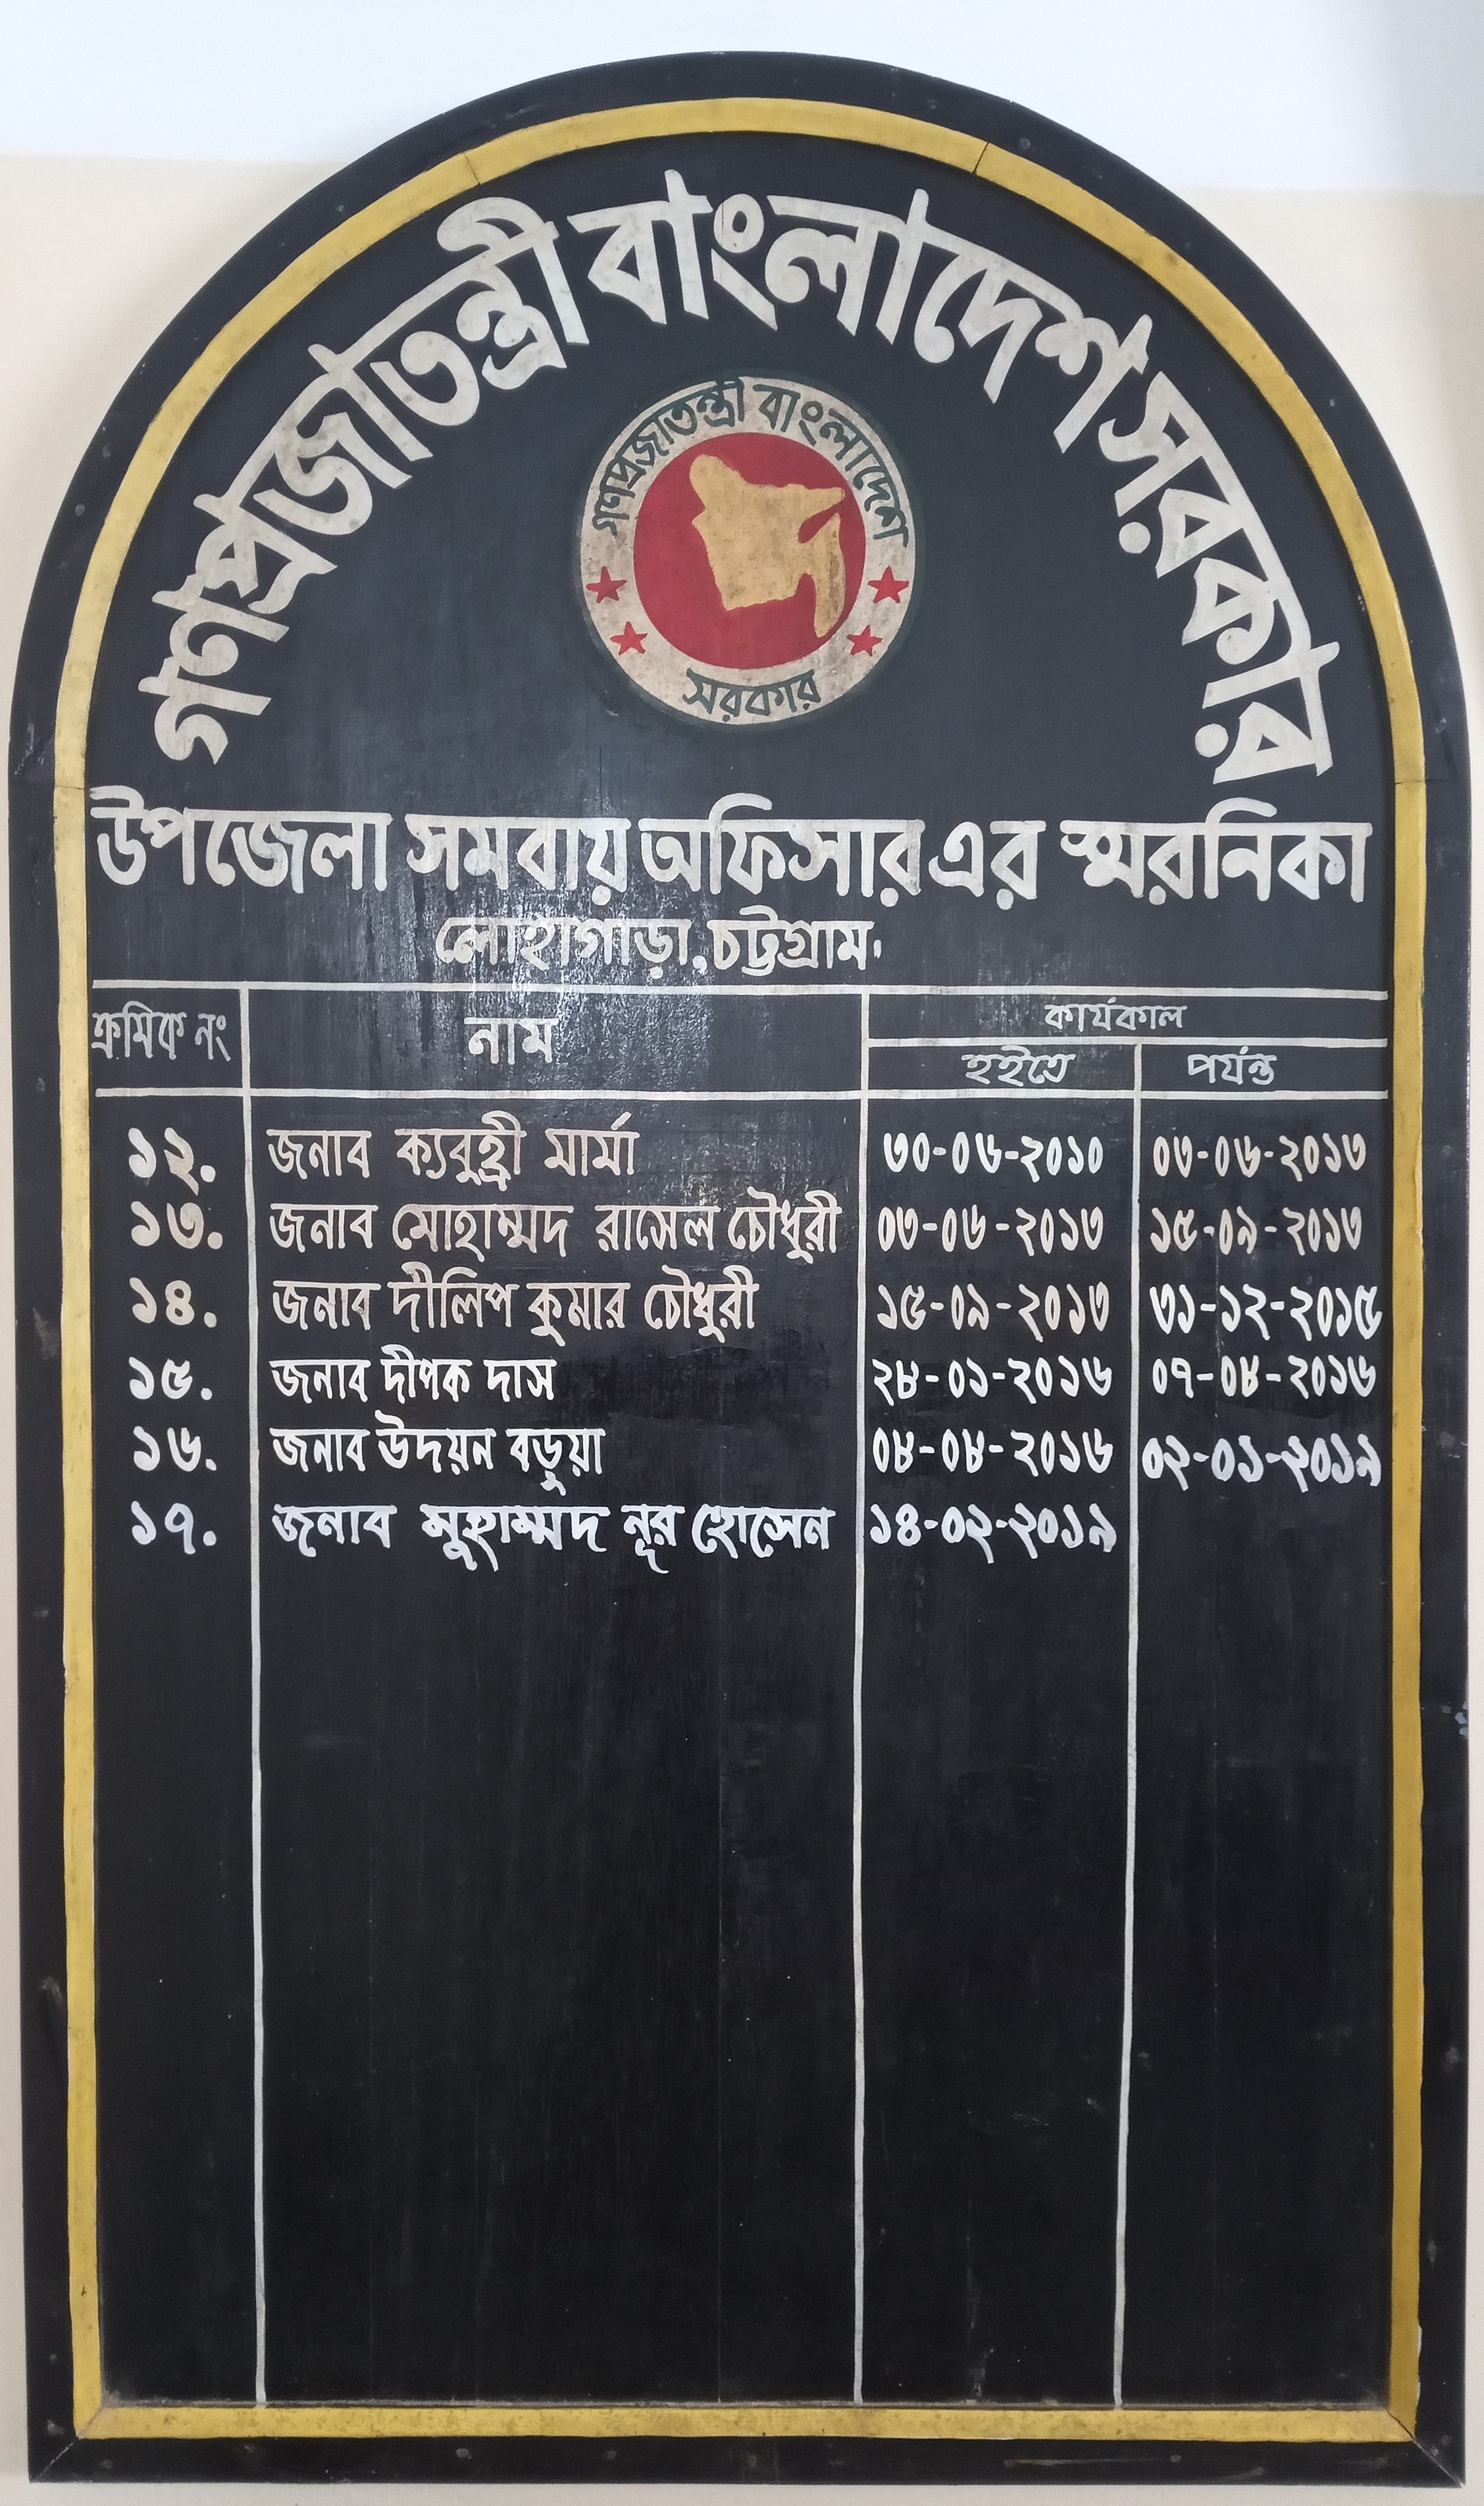 গণপ্রজাতন্ত্রী বাংলাদেশ সরকার
গণপ্রজাতন্ত্রী বাংলাদেশ
সরকার
উপজেলা সমবায় অফিসার এর স্মরনিকা
লোহাগাড়া, চট্টগ্রাম।
ক্রমিক নং নাম কার্যকাল
হইতে পর্যন্ত
১২. জনাব ক্যবুহ্রী মার্মা ৩০-০৬-২০১০ ০৩-০৬-২০১৩
১৩. জনাব মোহাম্মদ রাসেল চৌধুরী ০৩-০৬-২০১৩ ১৫-০৯-২০১৩
১৪. জনাব দীলিপ কুমার চৌধুরী ১৫-০৯-২০১৩ ৩১-১২-২০১৫
১৫. জনাব দীপক দাস ২৮-০১-২০১৬ ০৭-০৮-২০১৬
১৬. জনাব উদয়ন বড়ুয়া ০৮-০৮-২০১৬ ০২-০১-২০১৯
১৭. জনাব মুহাম্মদ নূর হোসেন ১৪-০২-২০১৯